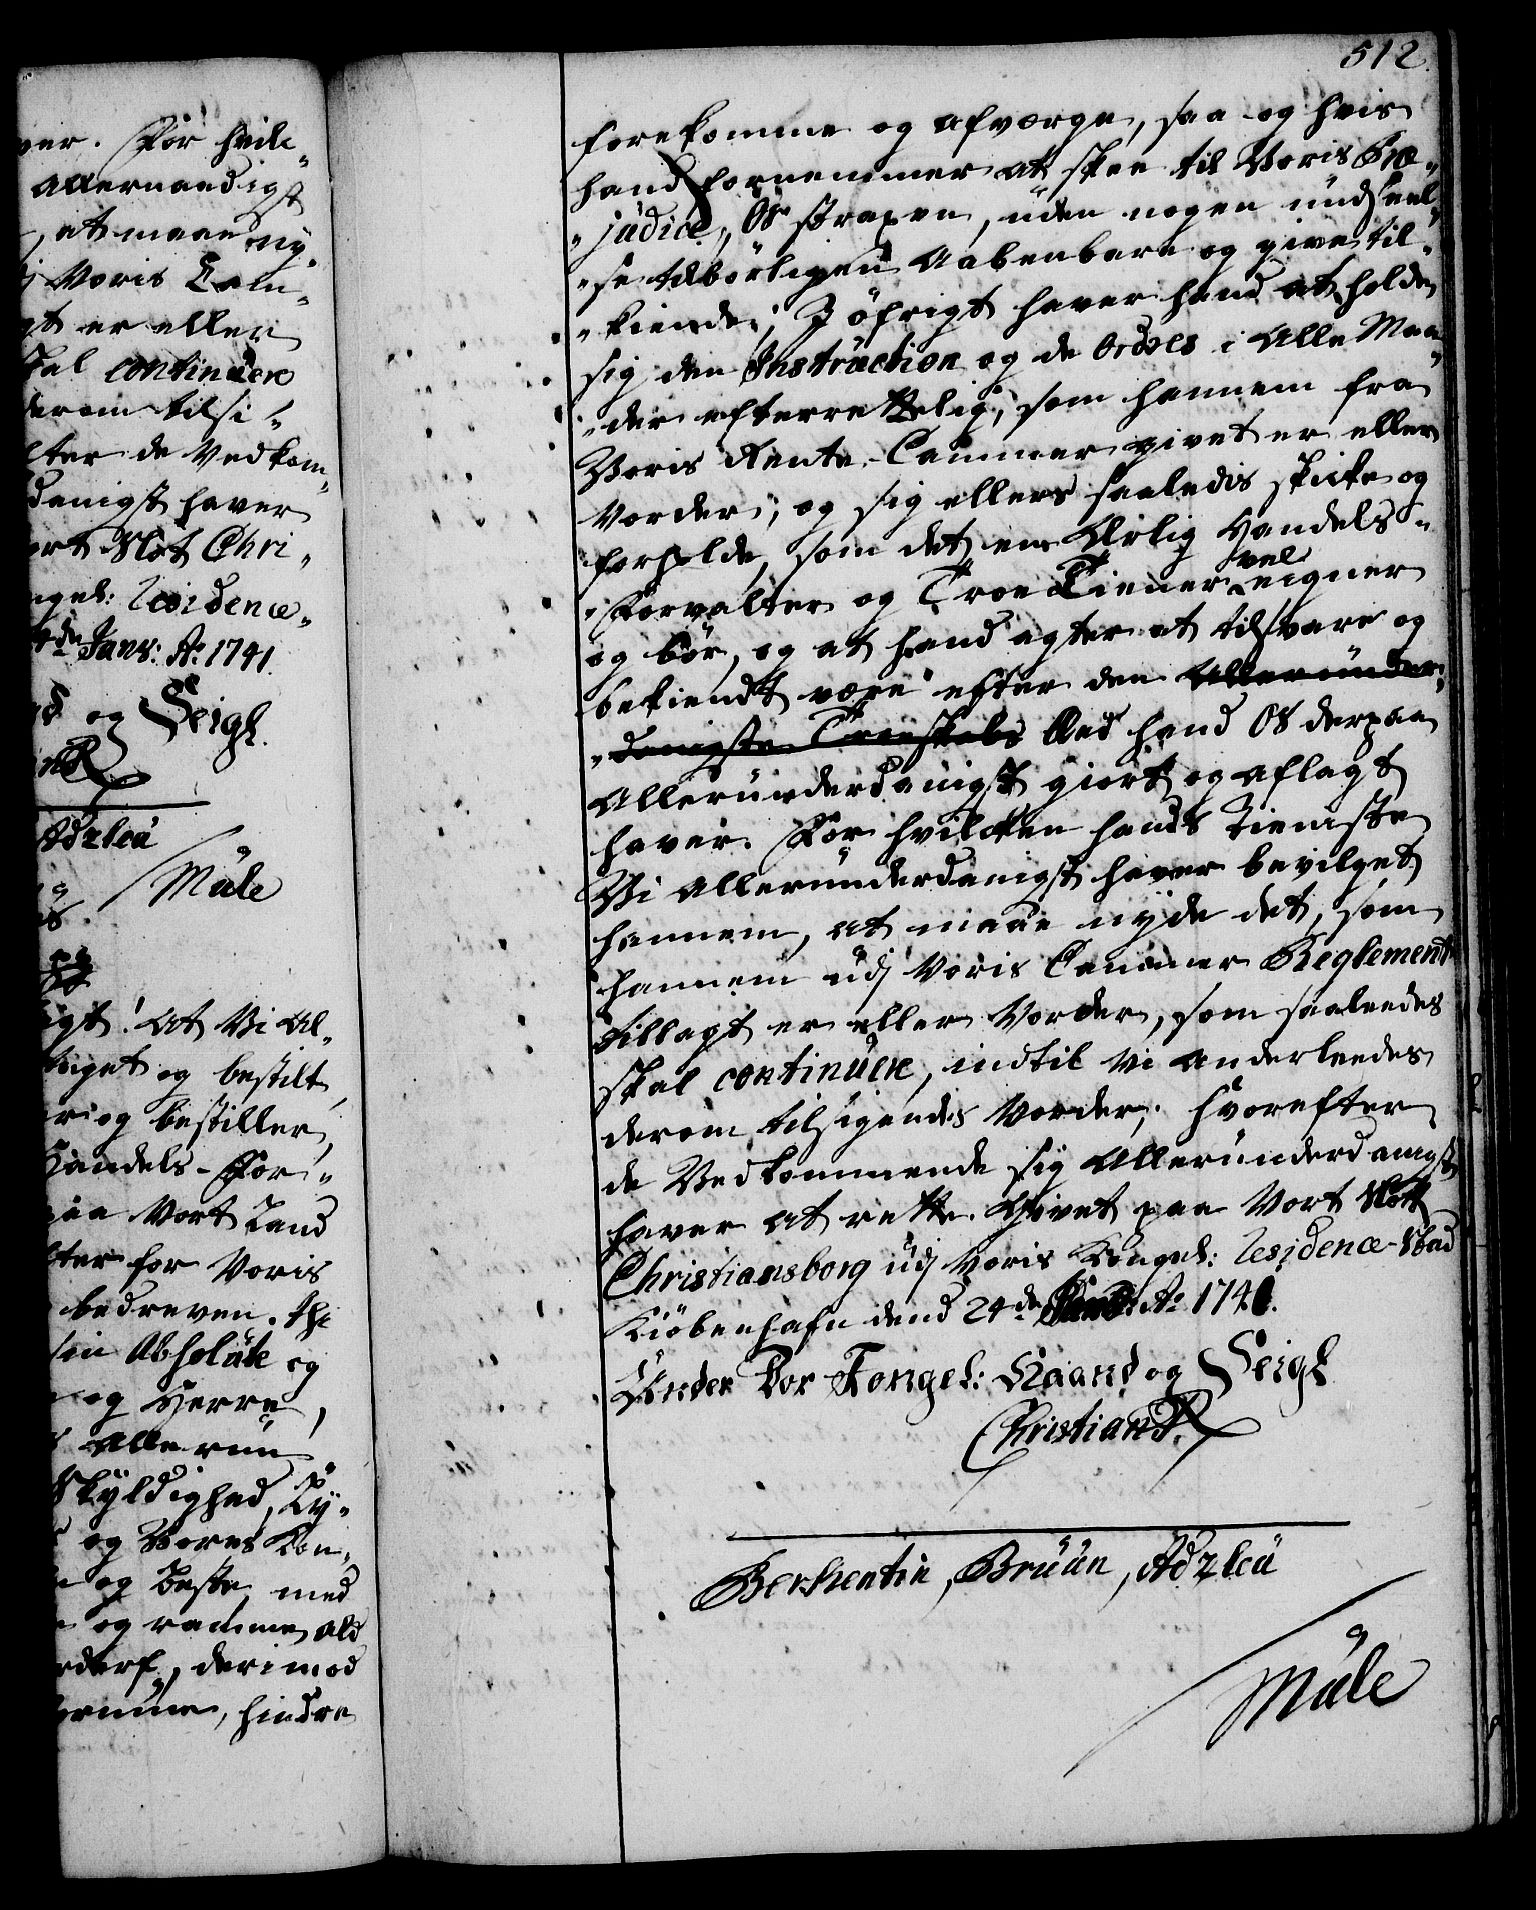 ver. For hvilc„
Allernaadigst
, at maae ny„
j Voris Cam„
gt er eller
skal continuere
derom tilsi„
fter de Vedkom„
danigst haver
ort Slot Chri„
ngel: Residence„
4de Janv: Ao 1741.
og Seigl.
Adeleü
Müle
igt! At Vi Al„
taget og bestilt,
r og bestiller,
Handels-For„
paa Vort Land
fter for Voris
bedreven. Thi
sin Absolute og
og Herre,
Allerun„
Skyldighed, Ty„
og Vores Kon„
og Beste, med
og ramme, ald
rderf, derimod
ornüme, hindre
512.
forekomme og afværge, saa og hvis
hand fornemmer at skee til Voris Præ„
„judice, Os straxen, uden nogen undseel„
„se tilbörligen aabenbare og give til„
„kiende; I öfrigt haver hand at holde
sig den Instruction og de Ordres i Alle Maa„
„der efterrettelig, som hannem fra
Voris Rente-Cammer givet er eller
vorder; og sig ellers saaledis skicke og
forholde, som det en Ærlig Handels„
„Forvalter og Troe Tiener vel eigner
og bör, og at hand agter at tilsvare og
bekiendt være efter den Allerunder„
„danigste Troeskabs Eed hand Os derpaa
Allerunderdanigst giort og aflagt
haver. For hvilcken hands Tieniste
Vi Allerunderdanigst haver bevilget
hannem, at maae nyde det, som
hannem udj Voris Cammer Reglement
tillagt er eller vorder, som saaleedes
skal continuere, indtil Vi anderleedes
derom tilsigendes vorder; hvorefter
de Vedkommende sig Allerunderdanigst
haver at rette. Givet paa Vort Slott
Christiansborg udj Voris Kongel: Residence-Stad
Kiöbenhafn dend 24de Janv: Ao 1741.
Under Vor Kongel: Haand og Seigl
Christian R.
Berkentin, Brüün, Adeleü
Müle